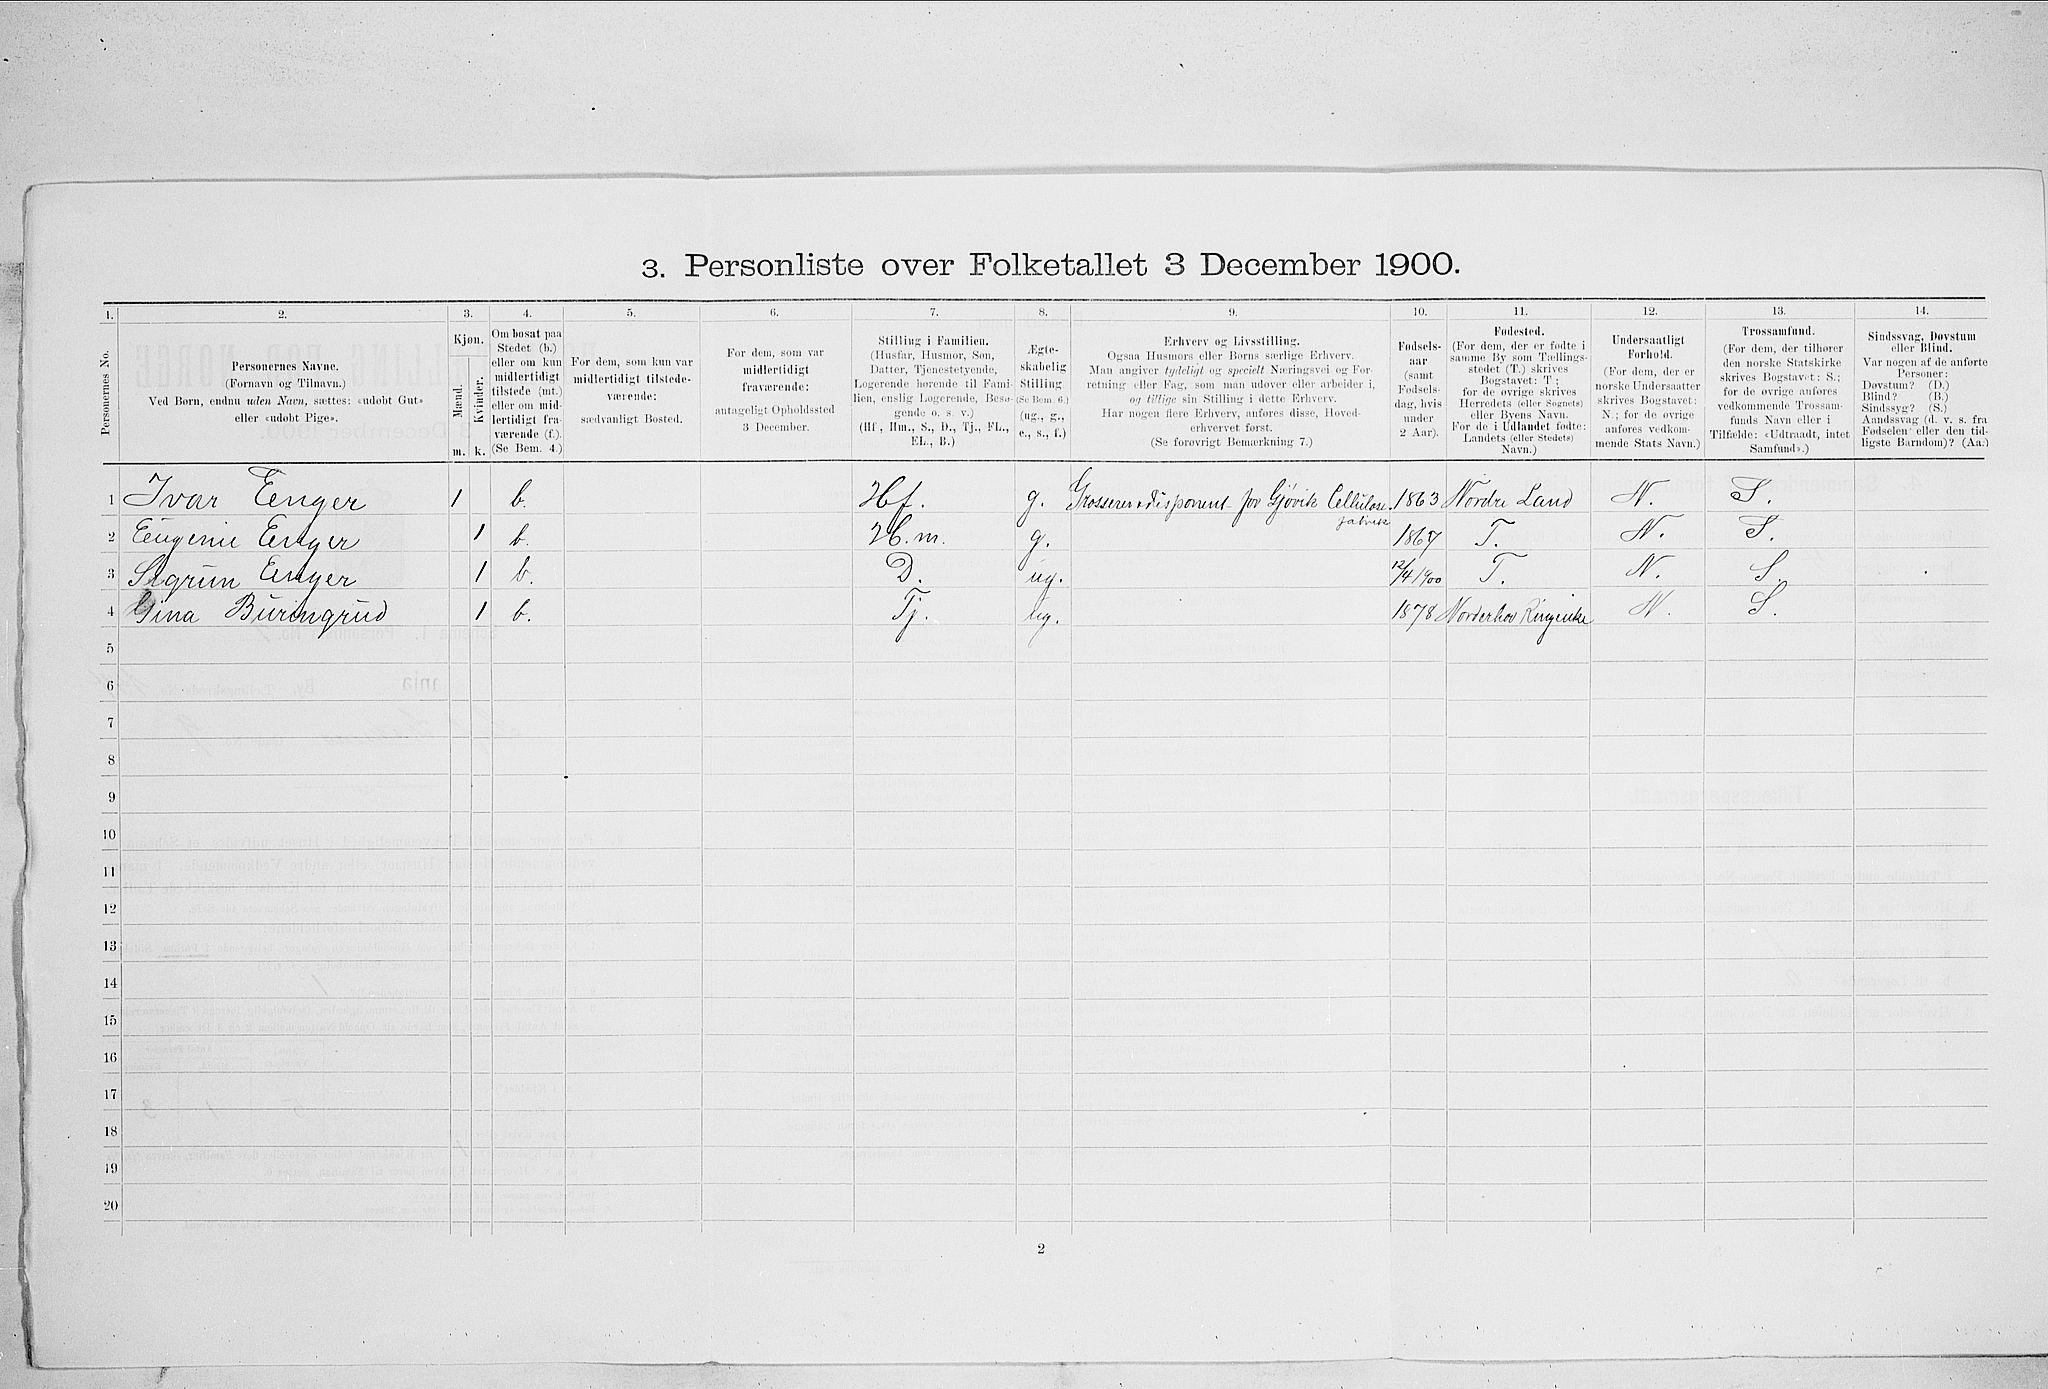 3. Personliste over Folketallet 3 December 1900.
1. 2. 3. 4. 5. 6. 7. 8. 9. 10. 11. 12. 13. 14.
Personernes No.
Personernes Navne.
(Fornavn og Tilnavn.)
Ved Børn, endnu uden Navn, sættes: «udobt Gut»
eller «udobt Pige».
Kjøn.
Mænd.
Kvinder.
m. k.
Om bosat paa
Stedet (b.)
eller om kun
midlertidigt
tilstede (mt.)
eller om mid-
lertidigt fra-
værende (f.)
(Se Bem. 4.)
For dem, som kun var
midlertidigt tilstede-
værende:
sædvanligt Bosted.
For dem, som var
midlertidigt
fraværende:
antageligt Opholdssted
3 December.
Stilling i Familien.
(Husfar, Husmor, Søn,
Datter, Tjenestetyende,
Logerende hørende til Fami-
lien, enslig Logerende, Besø-
gende o. s. v.)
(Hf., Hm., S., D., Tj., FL.,
EL., B.)
Ægte-
skabelig
Stilling.
(Se Bem. 6.)
(ug., g.,
e., s., f.)
Erhverv og Livsstilling.
Ogsaa Husmors eller Børns særlige Erhverv.
Man angiver tydeligt og specielt Næringsvei og For-
retning eller Fag, som man udøver eller arbeider i,
og tillige sin Stilling i dette Erhverv.
Har nogen flere Erhverv, anføres disse, Hoved-
erhvervet først.
(Se forøvrigt Bemærkning 7.)
Fødsels-
aar
(samt
Fødsels-
dag, hvis
under
2 Aar).
Fødested.
(For dem, der er fødte i
samme By som Tællings-
stedet (T.) skrives
Bogstavet: T;
for de øvrige skrives
Herredets (eller Sognets)
eller Byens Navn.
For de i Udlandet fødte:
Landets (eller Stedets)
Navn.)
Undersaatligt
Forhold.
(For dem, der er
norske Undersaatter
skrives Bogstavet:
N.; for de øvrige
anføres vedkom-
mende Stats Navn.)
Trossamfund.
(For dem, der tilhører
den norske Statskirke
skrives Bogstavet: S.;
for de øvrige anføres
vedkommende Trossam-
funds Navn eller i
Tilfælde: «Udtraadt, intet
Samfund».)
Sindssvag, Døvstum
eller Blind.
Var nogen af de anførte
Personer:
Døvstum? (D.)
Blind? (B.)
Sindssyg? (S.)
Aandssvag (d. v. s. fra
Fødselen eller den tid-
ligste Barndom)? (Aa.)
1 Ivar Eenger 1 b. Hf. g. Grosserer & disponent for Gjøvik Cellulose 1863 Nordre Land N. S.
fabrik
2 Eugenie Enger 1 b. H.m. g. 1867 T. N. S.
3 Sigrun Enger 1 b. D. ug. 12/4 1900 T. N. S.
4 Gina Buringrud 1 b. Tj. ug. 1878 Norderhov Ringerike N. S.
5
6
7
8
9
10
11
12
13
14
15
16
17
18
19
20
2